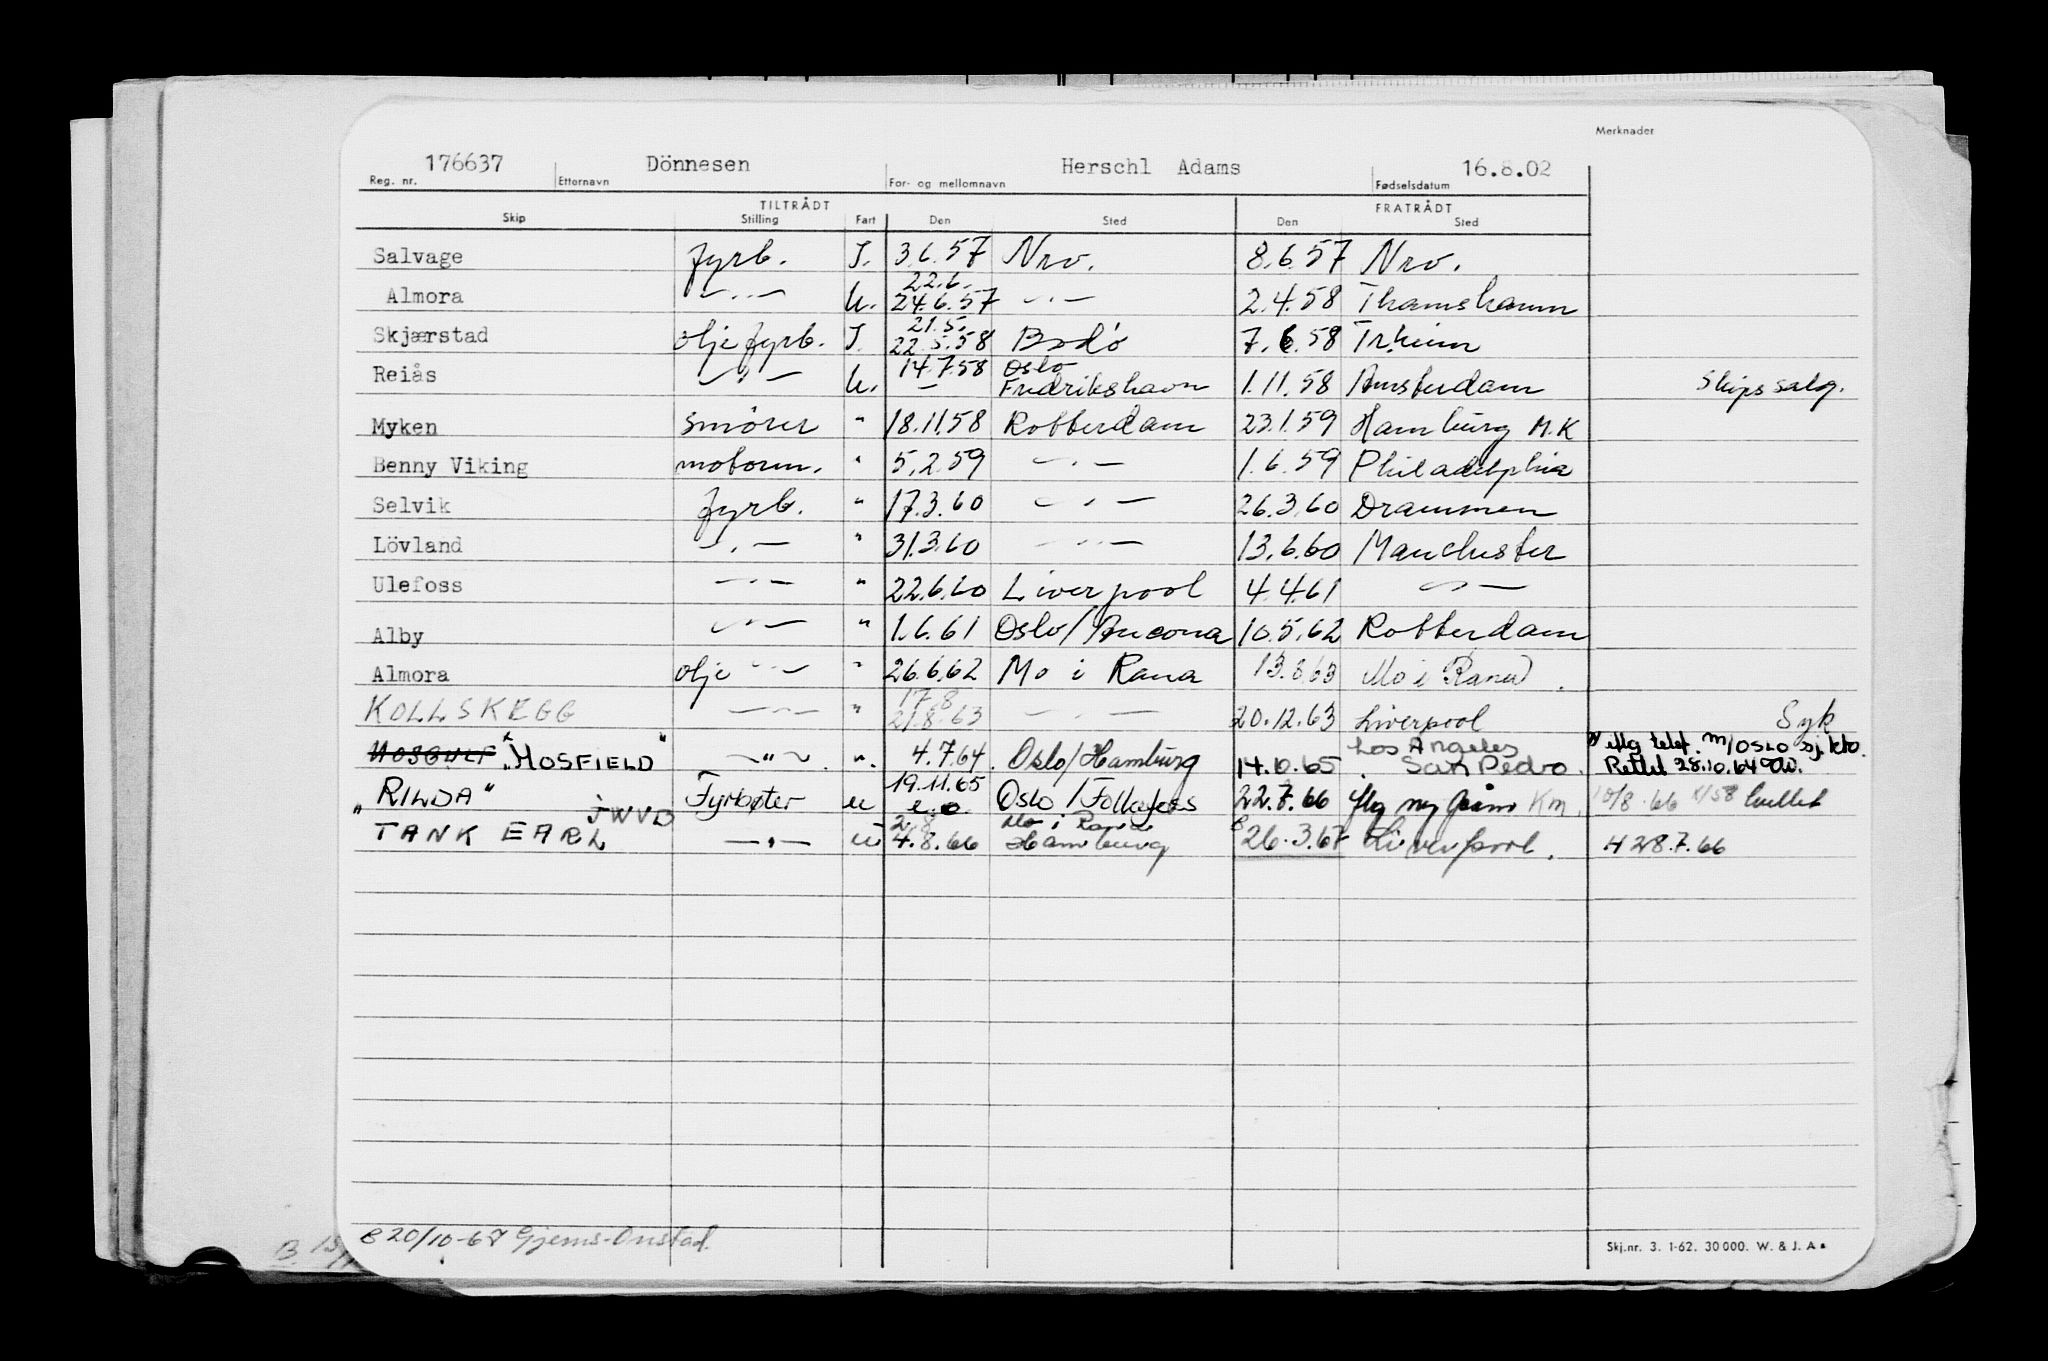 Merknader
176637 Dönnesen Herschl Adams 16.8.02
Reg. nr. Etternavn For- og mellomnavn Fødselsdatum
TILTRÅDT FRATRÅDT
Skip Stilling Fart Den Sted Den Sted
Salvage fyrb. I. 3.6.57 Nrv. 8.6.57 Nrv.
22.6.
Almora — " — U. 24.6.57 — " — 2.4.58 Thamshamn
21.5.
Skjærstad oljefyrb. I. 22.5.58 Bodö 7.6.58 Tr.heim
14.7.58 Oslo
Reiås — " — U. — Fredrikshavn 1.11.58 Amsterdam Skipssalg.
Myken smörer " 18.11.58 Rotterdam 23.1.59 Hamburg M.K
Benny Viking motorm. " 5.2.59 — " — 1.6.59 Philadelphia
Selvik fyrb. " 17.3.60 — " — 26.3.60 Drammen
Lövland — " — " 31.3.60 — " — 13.6.60 Manchester
Ulefoss — " — " 22.6.60 Liverpool 4.4.61 — " —
Alby — " — " 1.6.61 Oslo/Ancona 10.5.62 Rotterdam
Almora olje — " — " 26.6.62 Mo i Rana 13.8.63 Mo i Rana.
17.8
KOLLSKEGG — " — " 21.8.63 — " — 20.12.63 Liverpool Syk
Los Angeles iflg telef. m/OSLO sj.kto.
HOSGULF "HOSFIELD" — " — " 4.7.64. Oslo/Hamburg 14.10.65. San Pedro. Rettet 28.10.64
19.11.65
"RILDA" Fyrbøter u e.o. Oslo/Follafoss 22.7.66 iflg ny Km. 10/8.66
JWVD 2.8 Mo i Rana
TANK EARL — " — u 4.8.66 Hamburg 26.3.67 Liverpool. H 28.7.66
B 20/10-67 Gjems-Onstad.
B. 15/
Skj.nr. 3. 1-62. 30 000. W. & J. A.